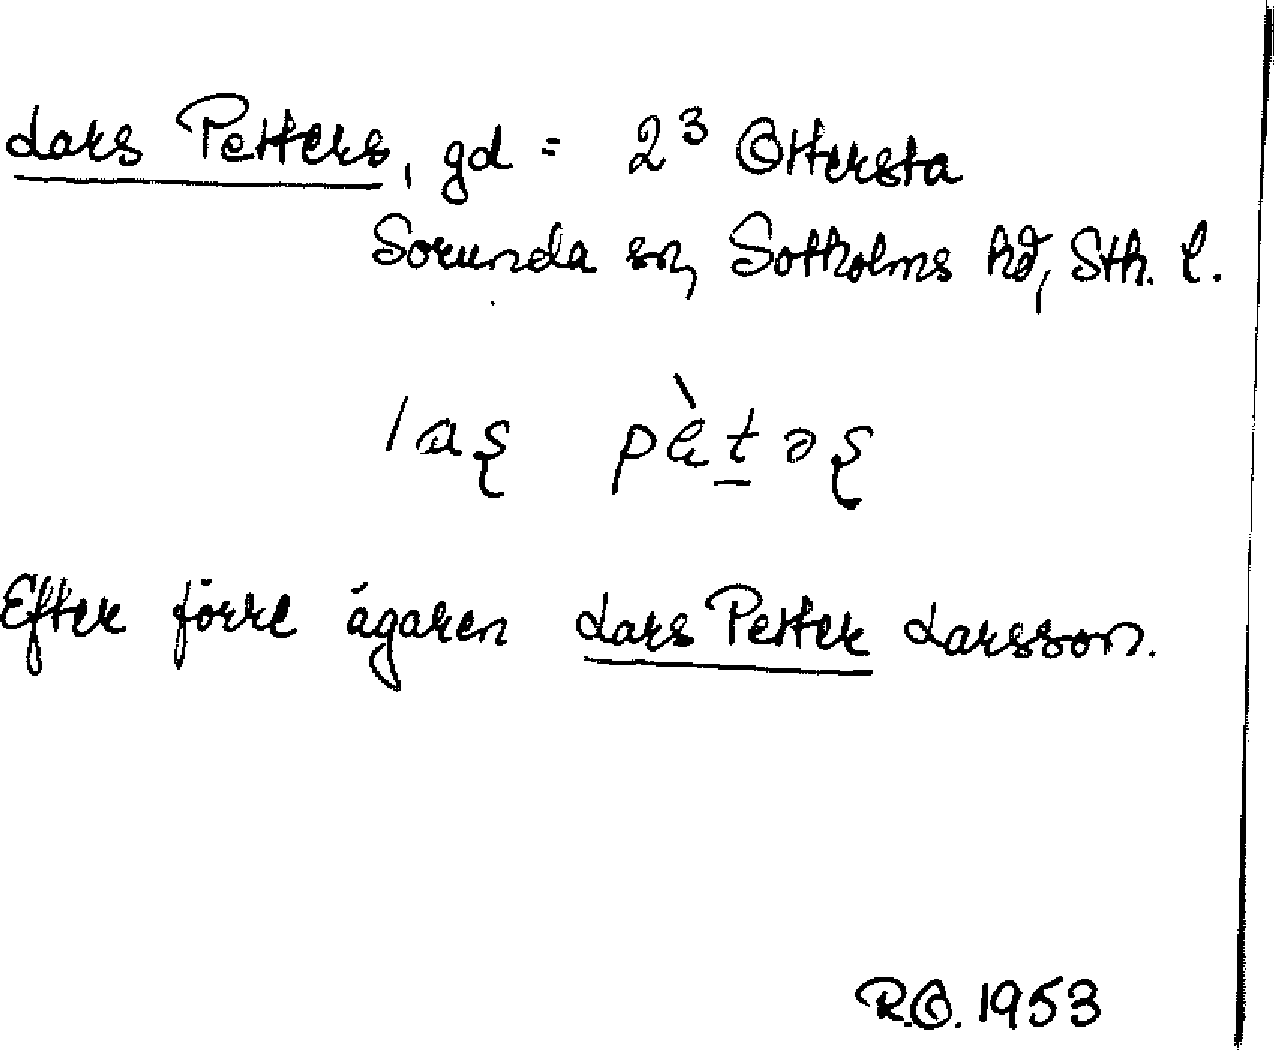 Lars Petters, gd = 2³ Ottersta
Sorunda sn, Sotholms hd, Sth. l.
laʂ pètəʂ
Efter förre ägaren Lars Petter Larsson.
R.O. 1953